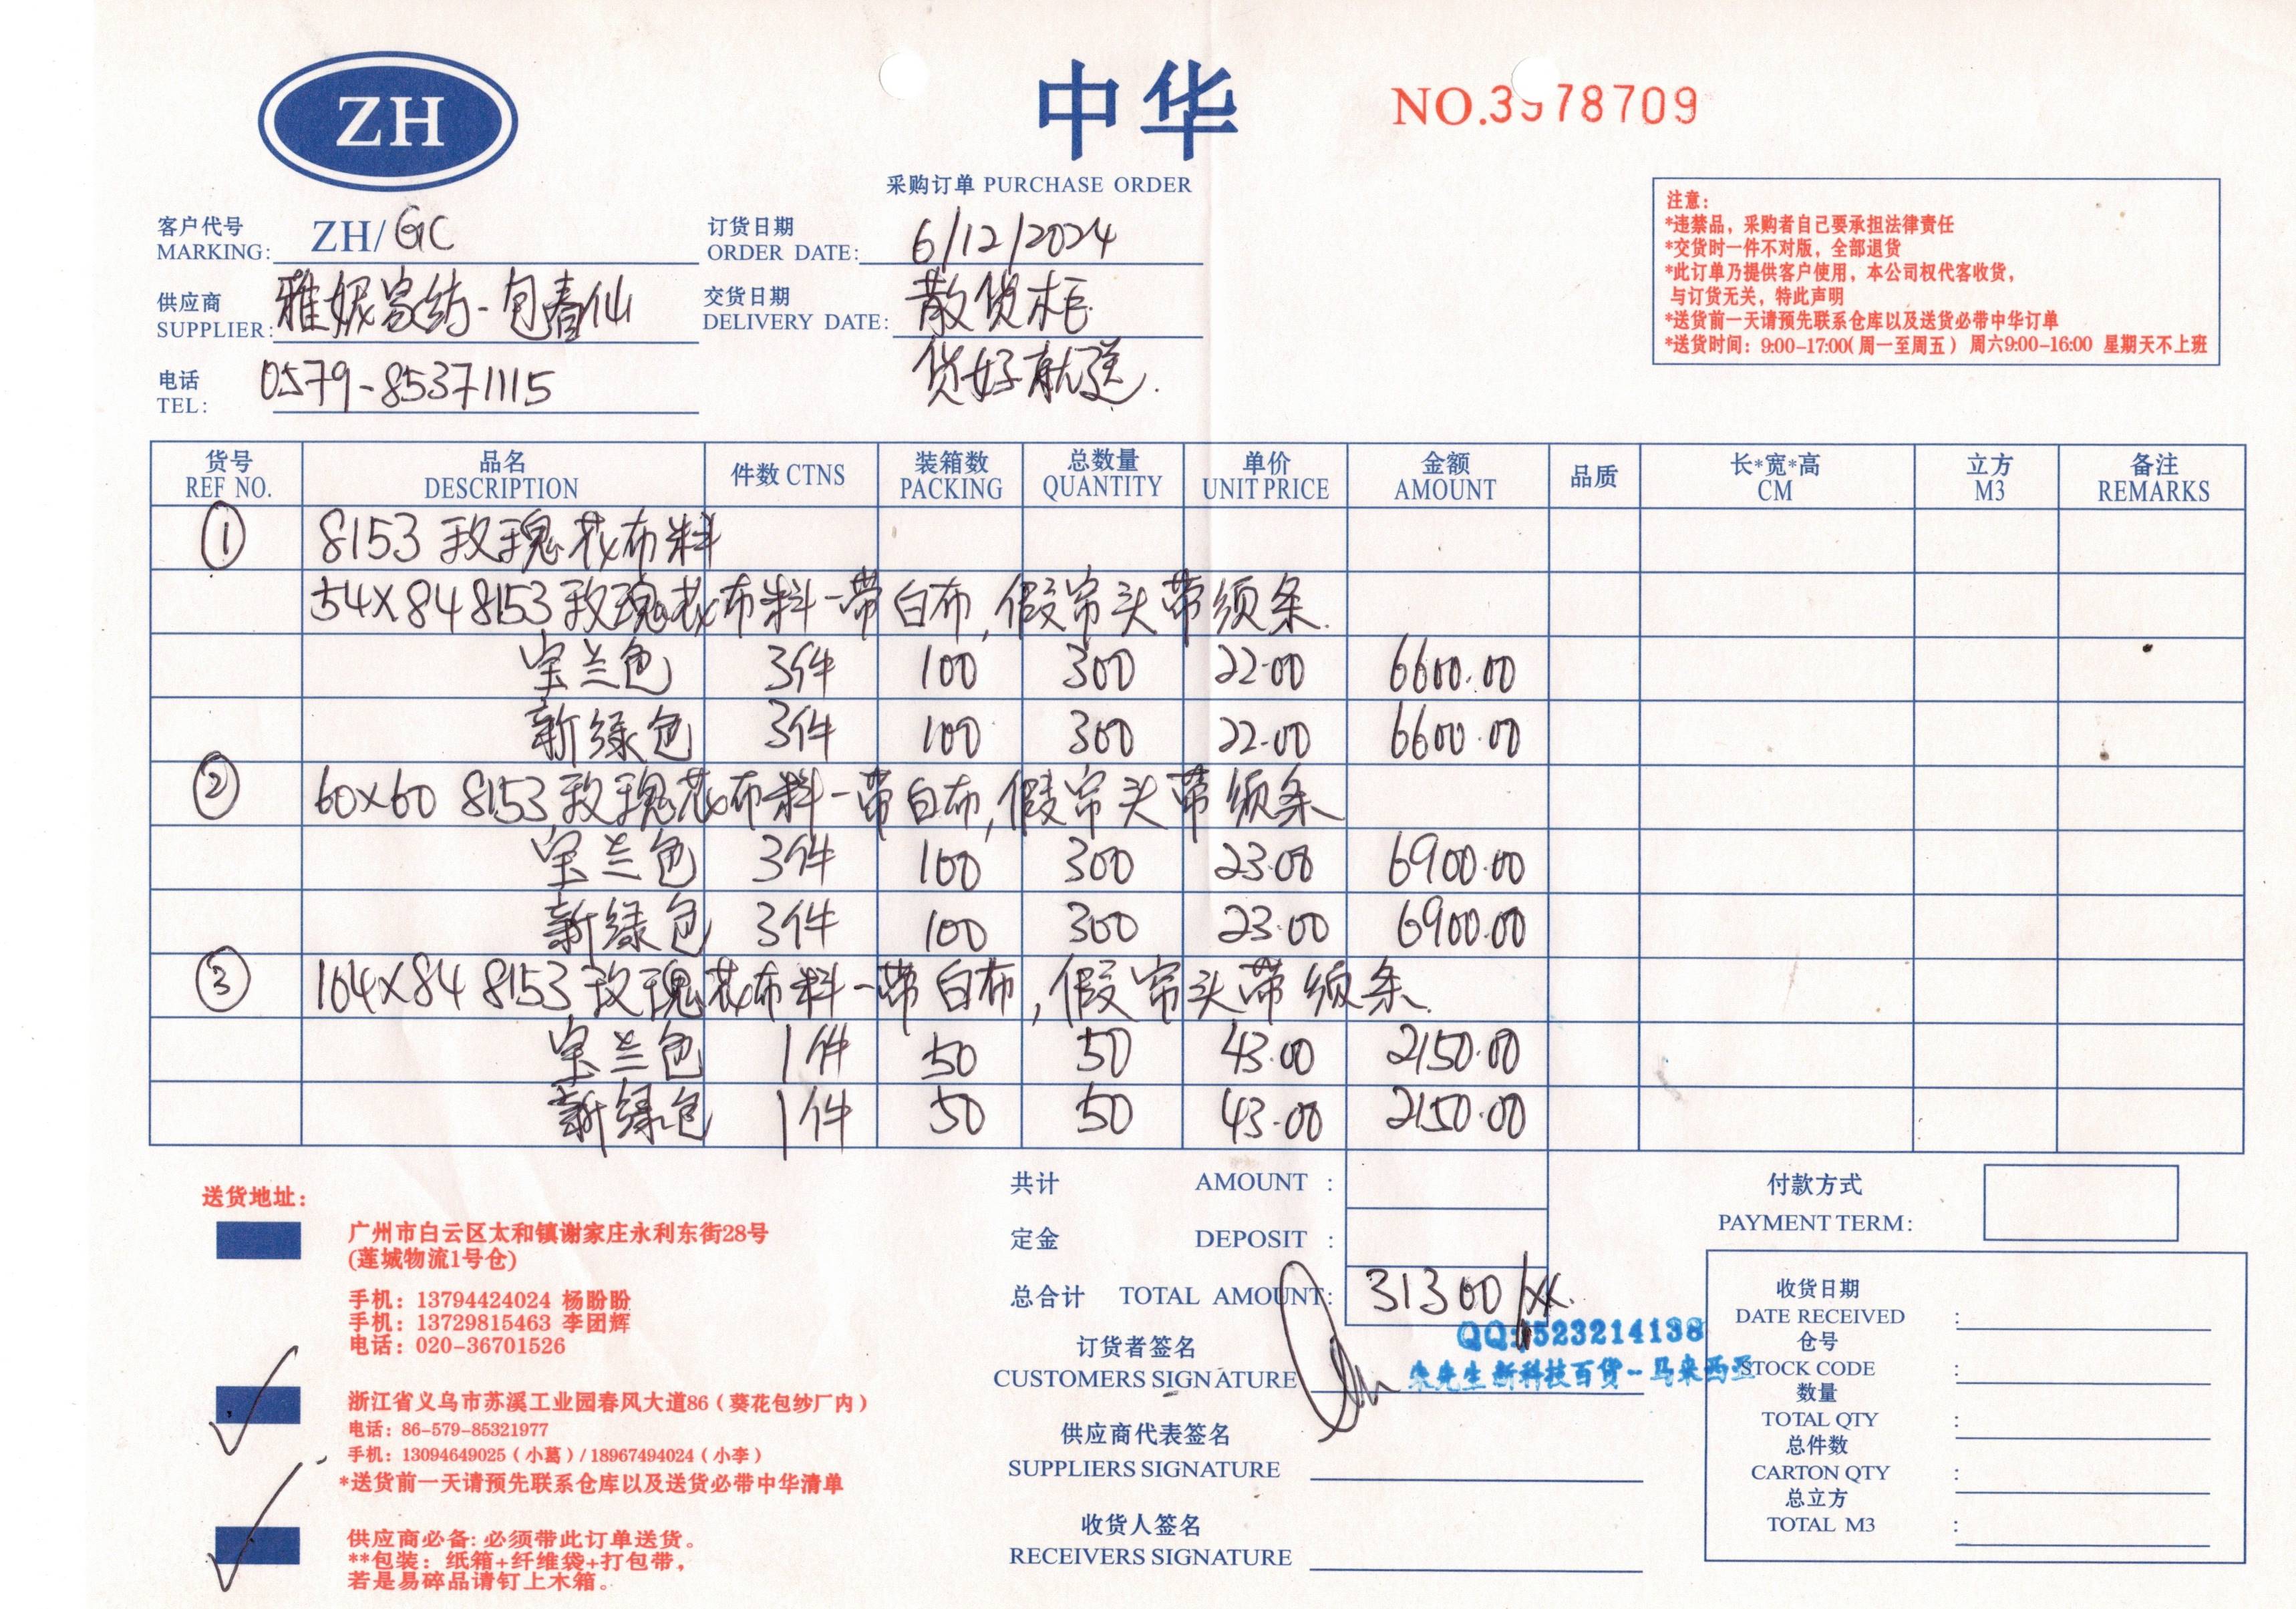 ZH
中华
NO.3978709
采购订单 PURCHASE ORDER
客户代号
MARKING: ZH/GC
订货日期
ORDER DATE: 6/12/2024
供应商
SUPPLIER: 雅妮家纺-包春仙
交货日期
DELIVERY DATE: 散货柜
货好就送.
电话
TEL: 0579-85371115
注意:
*违禁品，采购者自己要承担法律责任
*交货时一件不对版，全部退货
*此订单乃提供客户使用，本公司权代客收货，
与订货无关，特此声明
*送货前一天请预先联系仓库以及送货必带中华订单
*送货时间：9:00-17:00(周一至周五） 周六9:00-16:00 星期天不上班
货号 品名 件数 CTNS 装箱数 总数量 单价 金额 品质 长*宽*高 立方 备注
REF NO. DESCRIPTION PACKING QUANTITY UNIT PRICE AMOUNT CM M3 REMARKS
① 8153 玫瑰花布料
54X84 8153 玫瑰花布料-带白布,假帘头带须条.
宝兰色 3件 100 300 22.00 6600.00
新绿色 3件 100 300 22.00 6600.00
② 60X60 8153 玫瑰花布料-带白布,假帘头带须条
宝兰色 3件 100 300 23.00 6900.00
新绿色 3件 100 300 23.00 6900.00
③ 104X84 8153 玫瑰花布料-带白布,假帘头带须条.
宝兰色 1件 50 50 43.00 2150.00
新绿色 1件 50 50 43.00 2150.00
送货地址:
广州市白云区太和镇谢家庄永利东街28号
(莲城物流1号仓)
手机：13794424024 杨盼盼
手机：13729815463 李团辉
电话：020-36701526
浙江省义乌市苏溪工业园春风大道86（葵花包纱厂内）
电话：86-579-85321977
手机：13094649025（小葛）/18967494024（小李）
*送货前一天请预先联系仓库以及送货必带中华清单
供应商必备: 必须带此订单送货。
**包装：纸箱+纤维袋+打包带，
若是易碎品请钉上木箱。
共计 AMOUNT :
定金 DEPOSIT :
总合计 TOTAL AMOUNT: 31300
订货者签名
CUSTOMERS SIGNATURE
QQ:1523214138
朱先生新科技百货-马来西亚
供应商代表签名
SUPPLIERS SIGNATURE
收货人签名
RECEIVERS SIGNATURE
付款方式
PAYMENT TERM:
收货日期
DATE RECEIVED :
仓号
STOCK CODE :
数量
TOTAL QTY :
总件数
CARTON QTY :
总立方
TOTAL M3 :